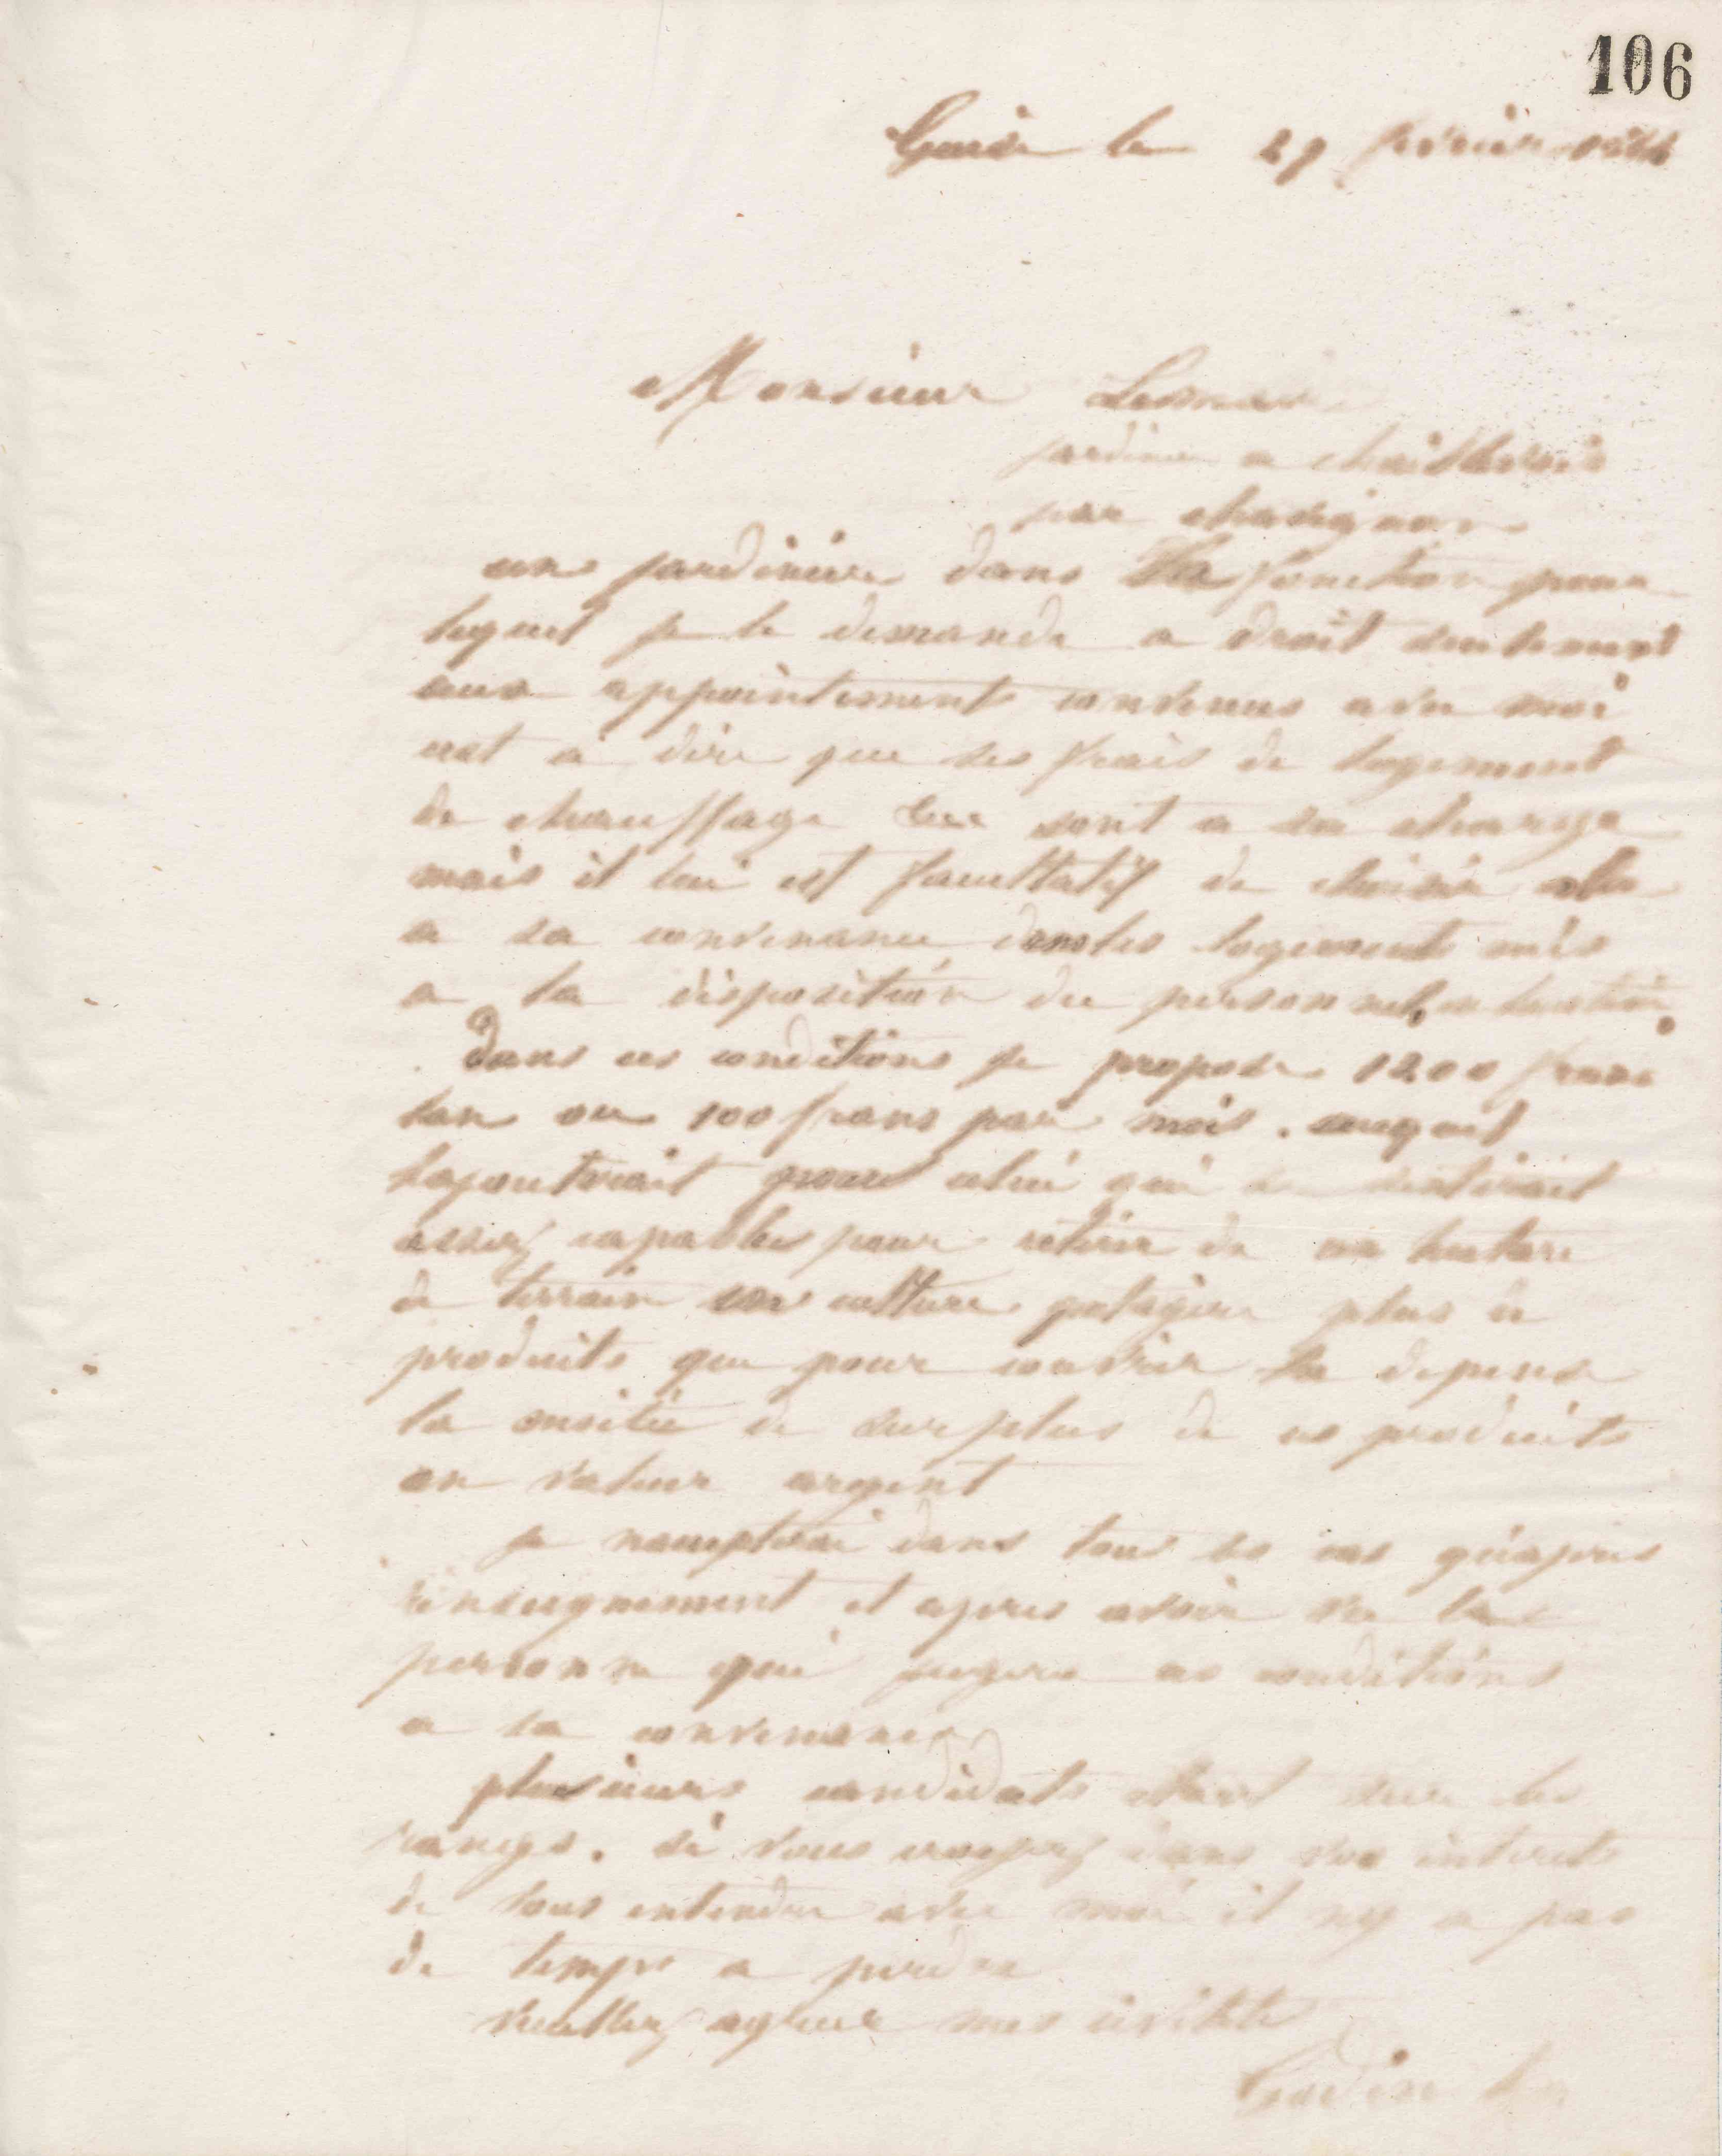 106
Guise le 27 février
Monsieur
jardinier a
par
un jardinier dans la fonction pour
lequel je le demande a droit seulement
aux appointements convenus avec moi
cest a dire que ses frais de logement
de chauffage sont a sa charge
mais il lui est facultatif de choisir
a sa convenance dans les logements mis
a la disposition du personnel
Dans ces conditions je propose 1200 francs
lan ou 100 francs par mois. auquel
sajouterait pour celui qui se sentirait
assez capable pour retirer de un hectare
de terrain en culture potagère plus de
produits que pour couvrir la depense
la moitié de surplus de ces produits
en valeur argent
je naccepterai dans tous les cas quapres
renseignement et apres avoir vu la
personne qui jugera ces conditions
a sa convenance
plusieurs candidats étant sur les
rangs. si vous croyez dans vos interets
de vous entendre avec moi il ny a pas
de temps a perdre
Veuillez agreer mes civilités
Godin